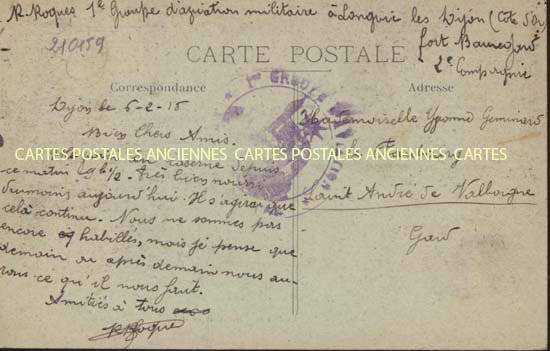 R. Roques 1e Groupe d'aviation militaire à Longvic les Dijon (Côte d'Or)
210159
fort
2e Compagnie
CARTE POSTALE
Correspondance
Adresse
1er GROUPE D'AVIATION
Dijon le 6-2-15
Mademoiselle Yvonne
Bien Chers Amis.
CARTES POSTALES ANCIENNES CARTES POSTALES ANCIENNES CARTES POSTALES ANCIENNES
caserne depuis
ce matin 9h 1/2. Très bien nourri
du moins aujourd'hui. Il s'agirait que
Saint André de Valborgne
celà continu. Nous ne sommes pas
Gard
encore habillés, mais je pense que
demain ou après demain nous au-
rons ce qu'il nous faut.
Amitiés à tous
RRoques